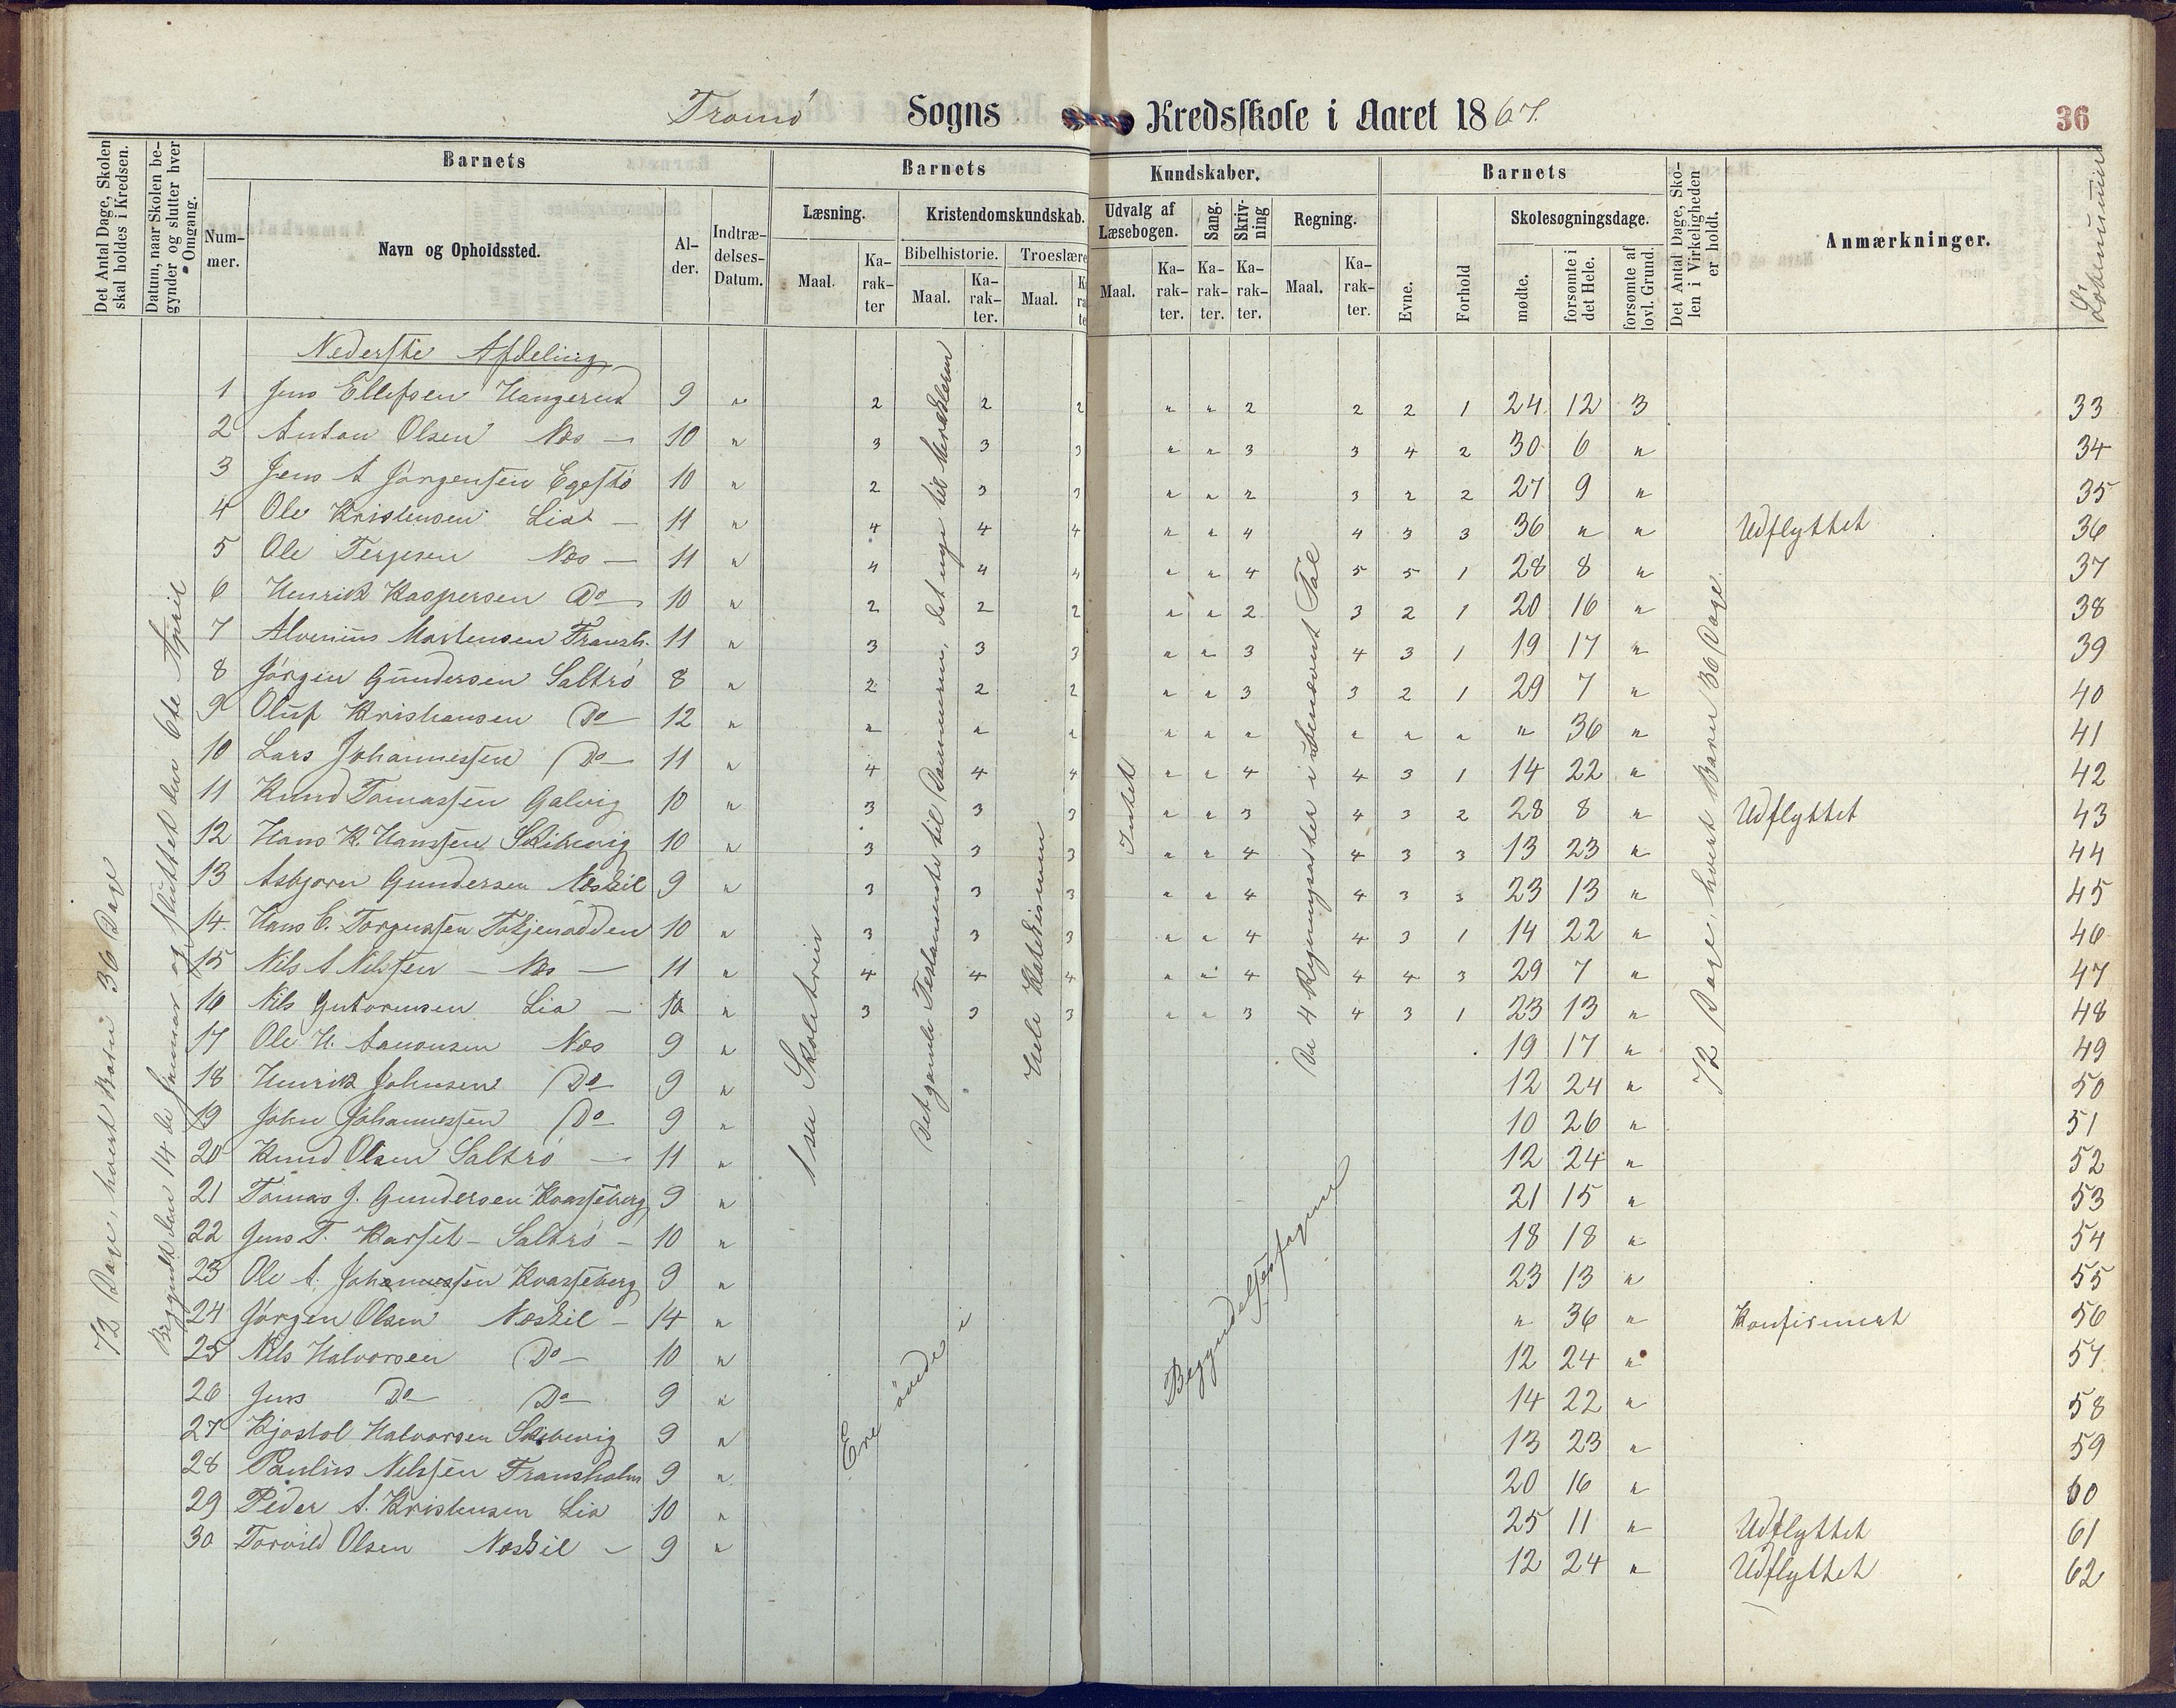 Tromø Sogns Kredsskole i Aaret 1867. 36
Det Antal Dage, Skolen skal holdes i Kredsen.
Datum, naar Skolen begynder og slutter hver Omgang.
Barnets
Nummer.
Navn og Opholdssted.
Alder.
Indtrædelses-Datum.
Barnets Kundskaber.
Læsning. Maal. Karakter
Kristendomskundskab.
Bibelhistorie. Maal. Karakter.
Troeslære Maal.
Udvalg af Læsebogen. Maal. Karakter.
Sang. Karakter.
Skrivning Karakter.
Regning. Maal. Karakter.
Barnets
Evne.
Forhold
Skolesøgningsdage.
mødte.
forsømte i det Hele.
forsømte af lovl. Grund.
Det Antal Dage, Skolen i Virkeligheden er holdt.
Anmærkninger.
Løbenummer
72 Dage, hvert Barn 36 Dage
Begyndt den 14de Januar og sluttet den 6te April
1ste Skoletrin
Det gamle Testamente til Dommerne, det nye til
Hele Katekismen
Intet
De 4 Regningsarter i ubenævnt Tal
72 Dage, hvert Barn 36 Dage
Ere øvede i Begyndelsesfagene
Nederste Afdeling
1 Jens Ellefsen Hangerud 9 " 2 2 2 " " 2 2 2 1 24 12 3 33
2 Anton Olsen Næs — 10 " 3 3 3 " " 3 3 4 2 30 6 " 34
3 Jens A Jørgensen Egestø 10 " 2 3 3 " " 2 3 2 2 27 9 " 35
4 Ole Kristensen Lia — 11 " 4 4 4 " " 4 4 3 3 36 " " Udflyttet 36
5 Ole Terjesen Næs — 11 " 4 4 4 " " 4 5 5 1 28 8 " 37
6 Henrik Kaspersen Do 10 " 2 2 2 " " 2 3 2 1 20 16 " 38
7 Alvenius Mortensen Fransh. 11 " 3 3 3 " " 3 4 3 1 19 17 " 39
8 Jørgen Gundersen Saltrø 8 " 2 2 2 " " 3 3 2 1 29 7 " 40
9 Oluf Kristiansen Do 12 " " " " " " " " " " " 36 " 41
10 Lars Johannessen Do 11 " 4 4 4 " " 4 4 3 1 14 22 " 42
11 Knud Tomassen Galvig 10 " 3 3 3 " " 3 4 3 2 28 8 " Udflyttet 43
12 Hans K. Hanssen Skibevig 10 " 3 3 3 " " 4 4 3 3 13 23 " 44
13 Asbjørn Gundersen Næskil 9 " 3 3 3 " " 4 4 3 3 23 13 " 45
14. Hans C. Torgersen 10 " 3 3 3 " " 4 4 3 1 14 22 " 46
15 Nils A Nilssen — Næs — 11 " 4 4 4 " " 4 4 4 3 29 7 " 47
16 Nils Gutormsen Lia — 10 " 3 3 3 " " 3 4 3 1 23 13 " 48
17 Ole H. Aanonsen Næs 9 " 19 17 " 49
18 Henrik Johnsen Do 9 " 12 24 " 50
19 John Johannessen Do 9 " 10 26 " 51
20 Knud Olsen Saltrø — 11 " 12 24 " 52
21 Tomas J. Gundersen Kvasseberg 9 " 21 15 " 53
22 Jens T. Karset — Saltrø — 10 " 18 18 " 54
23 Ole A. Johannessen Kvasseberg 9 " 23 13 " 55
24 Jørgen Olsen Næskil — 14 " " 36 " Konfirmert 56
25 Nils Halvorsen Do — 10 " 12 24 " 57
26 Jens Do Do 9 " 14 22 " 58
27 Kjøstol Halvorsen Skibevig 9 " 13 23 " 59
28 Paulus Nilssen Fransholm 9 " 20 16 " 60
29 Peder A. Kristensen Lia 10 " 25 11 " Udflyttet 61
30 Torvild Olsen Næskil — 9 " 12 24 " Udflyttet 62